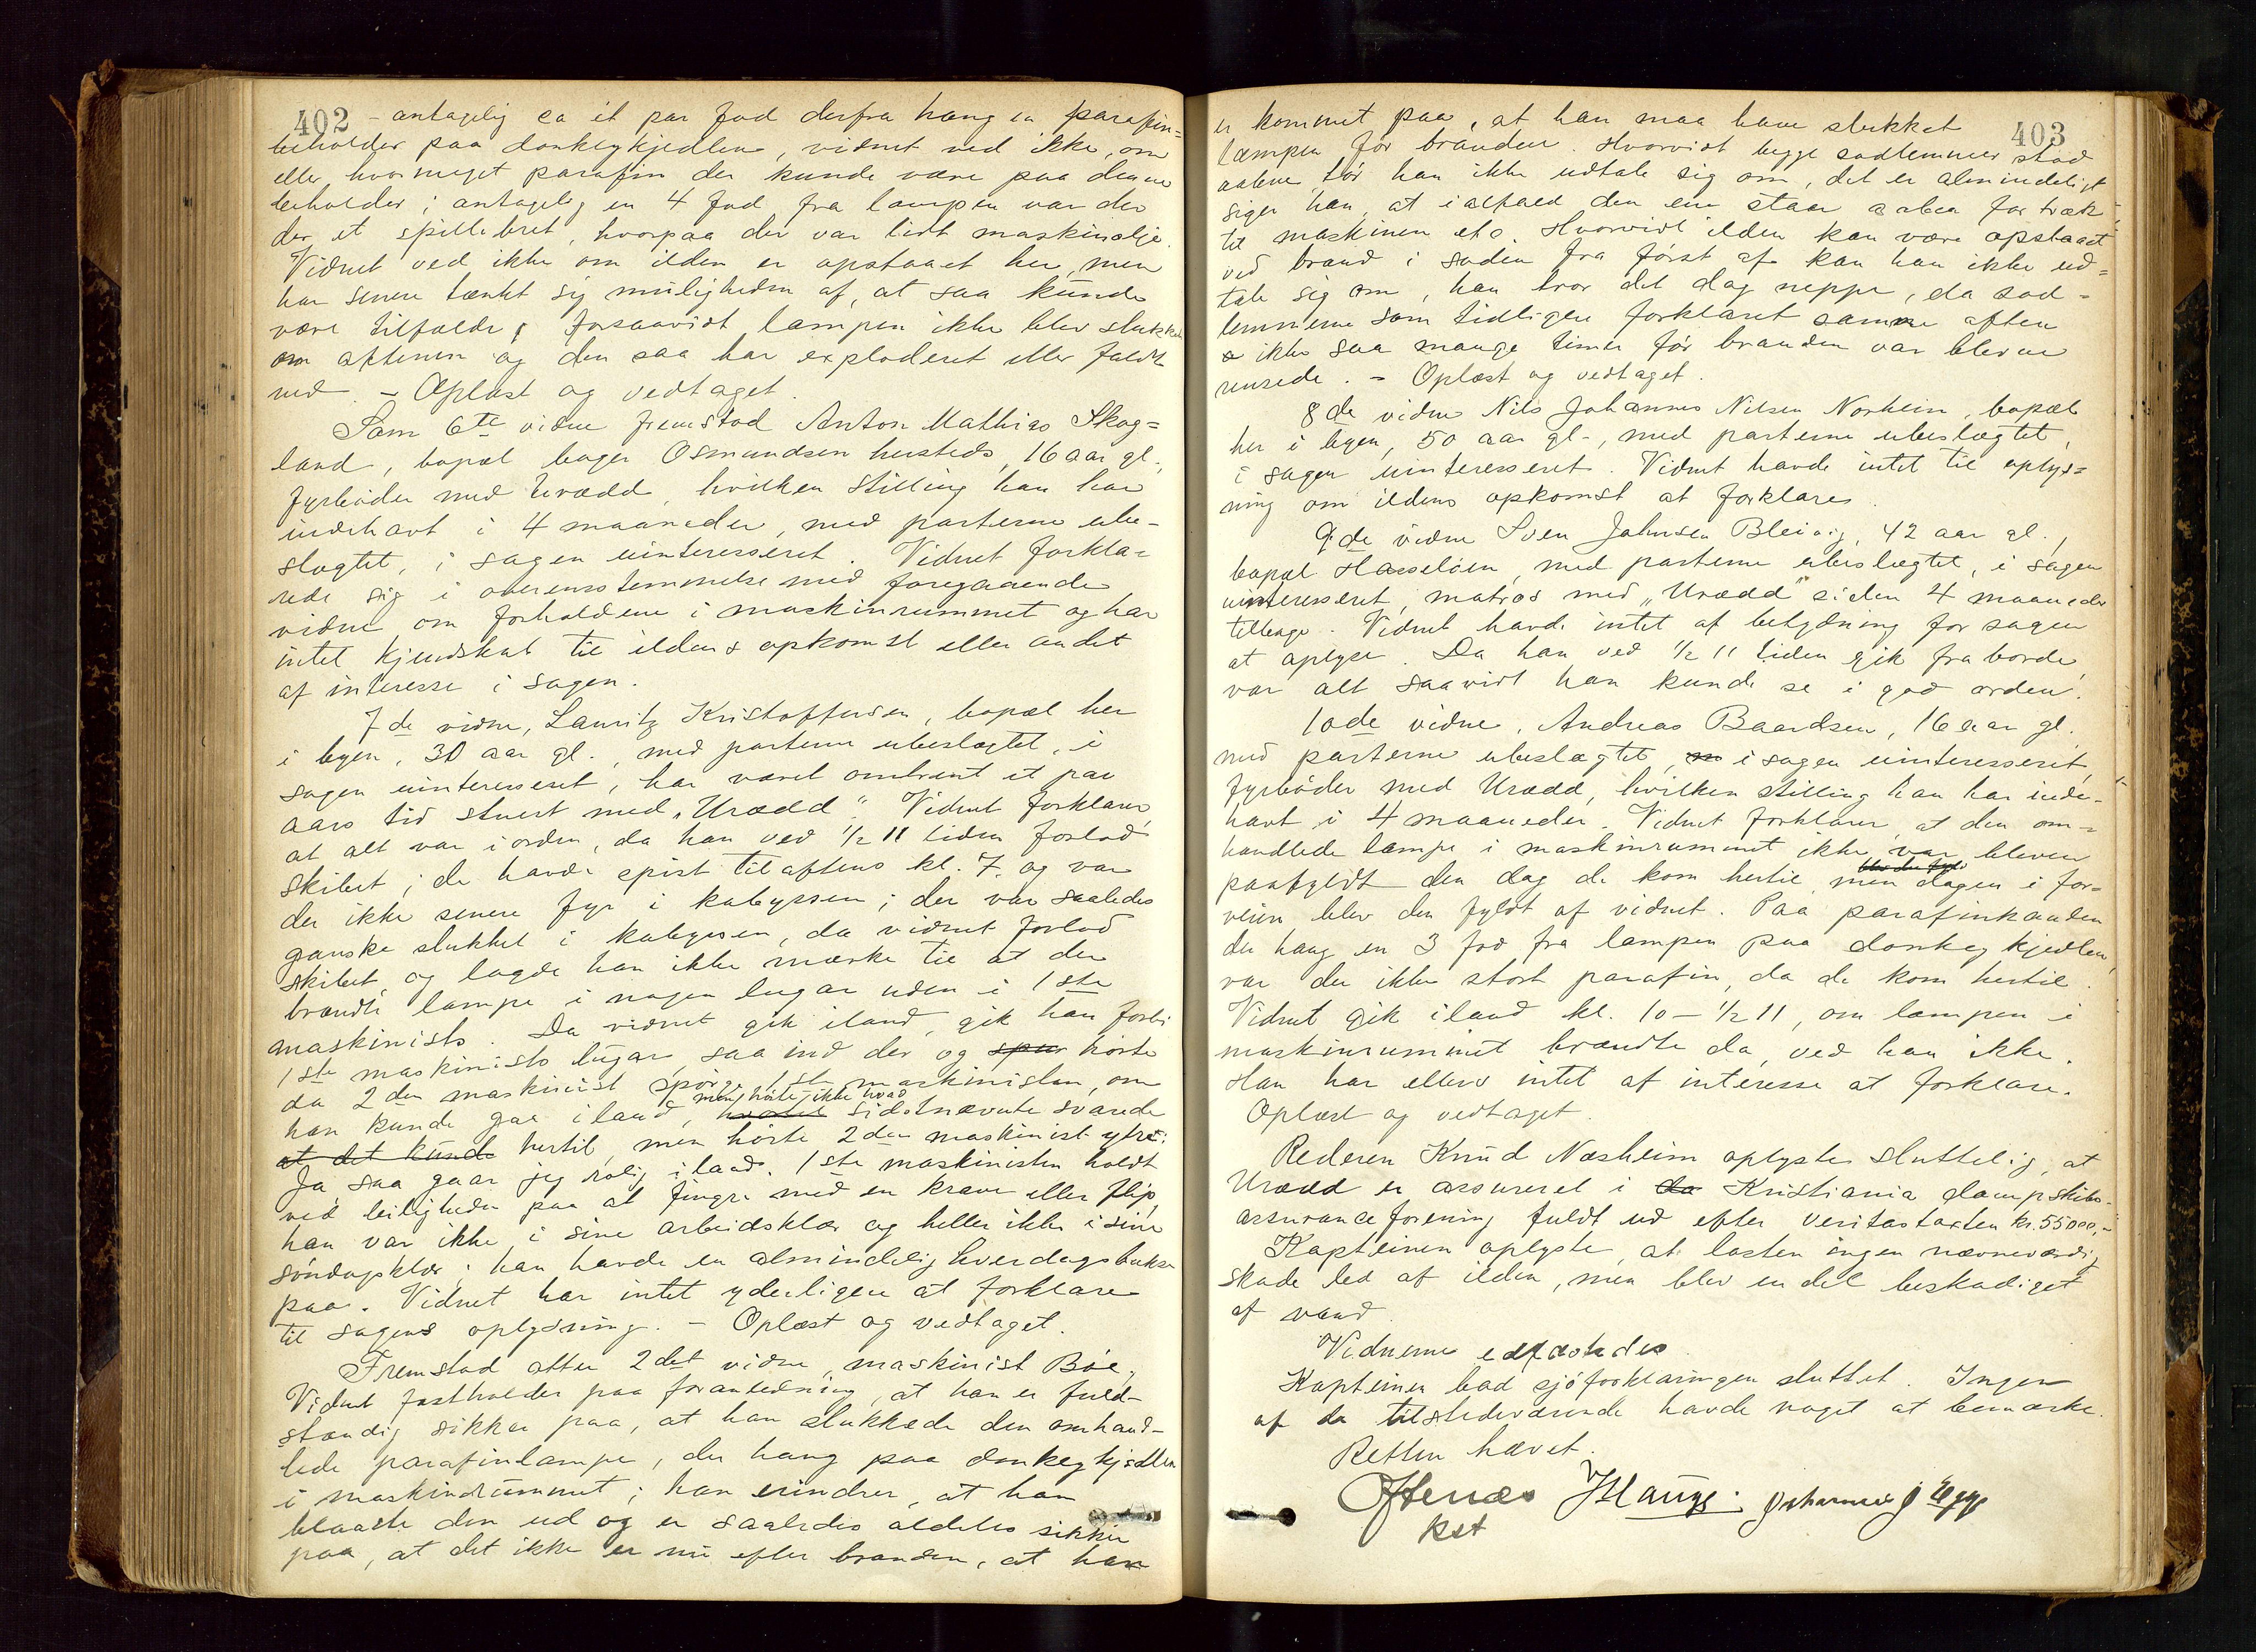 402 - antagelig ca et par fod derfra hang en parafin=
beholder paa donkeykjedlen, vidnet ved ikke, om
eller hvormeget parafin der kunde være paa denne
beholder; antagelig en 4 fod fra lampen var der
der et spillebret, hvorpaa der var lidt maskinolje.
Vidnet ved ikke om ilden er opstaaet her, men
har senere tænkt sig muligheden af, at saa kunde
være tilfælde, forsaavidt lampen ikke blev slukket
om aftenen og den saa har exploderet eller faldt
ned. - Oplæst og vedtaget.
Som 6te vidne fremstod Anton Mathias Skog=
land, bopæl bager Osmundsen hersteds, 16 aar gl.,
fyrbøder med Urædd, hvilken stilling han har
indehavt i 4 maaneder, med parterne ube-
slægtet, i sagen uinteresseret. Vidnet forkla=
rede sig i overensstemmelse med foregaaende
vidne om forholdene i maskinrummet og har
intet kjendskab til ildens opkomst eller andet
af interesse i sagen.
7de vidne, Lauritz Kristoffersen, bopæl her
i byen, 30 aar gl., med parterne ubeslægtet, i
sagen uinteresseret, har været omtrent et par
aars tid stuert med „Urædd". Vidnet forklarer,
at alt var i orden, da han ved 1/2 11 tiden forlod
skibet; de havde spist tilaftens kl. 7 og var
der ikke senere fyr i kabyssen; der var saaledes
ganske slukket i kabyssen, da vidnet forlod
skibet, og lagde han ikke mærke til at der
brændte lampe i nogen lugar uden i 1ste
maskinists. Da vidnet gik iland, gik han forbi
1ste maskinists lugar, saa ind der og spur hørte
da 2den maskinist spørge 1ste maskinisten, om
han kunde gaa iland, men hørte ikke hvad sidstnævnte svarede
at det kunde hertil, men hørte 2den maskinist ytre:
Ja saa gaar jeg rolig iland. 1ste maskinisten holdt
ved leiligheden paa at fingre med en krave eller flip,
han var ikke i sine arbeidsklær og heller ikke i sine
søndagsklær; han havde en almindelig hverdagsbukse
paa. Vidnet har intet yderligere at forklare
til sagens oplysning. - Oplæst og vedtaget.
Fremstod atter 2det vidne, maskinist Bøe,
Vidnet fastholder paa foranledning, at han er fuld-
stændig sikker paa, at han slukkede den omhand-
lede parafinlampe, der hang paa donkeykjedlen
i maskinrummet; han erindrer, at han
blaaste den ud og er saaledes aldeles sikker
paa, at det ikke er nu efter branden, at han
403
er kommet paa, at han maa have slukket
lampen før branden. Hvorvidt begge sodlemmer stod
aabne tør han ikke udtale sig om, det er almindeligt
siger han, at ialfald den ene staar aaben for træk
til maskinen etc. Hvorvidt ilden kan være opstaaet
ved brand i soden fra først af kan han ikke ud=
tale sig om, han tror det dog neppe, da sod-
lemmerne som tidligere forklaret samme aften
ikke saa mange timer før branden var blevne
rensede. - Oplæst og vedtaget.
8de vidne Nils Johannes Nilsen Norheim, bopæl
her i byen, 50 aar gl., med parterne ubeslægtet,
i sagen uinteresseret. Vidnet havde intet til oplys=
ning om ildens opkomst at forklare.
9de vidne Sven Johnsen Bleivig, 42 aar gl.,
bopæl Hasseløen, med parterne ubeslægtet, i sagen
uinteresseret, matros med „Urædd" siden 4 maaneder
tilbage. Vidnet havde intet af betydning for sagen
at oplyse. Da han ved 1/2 11 tiden gik fra borde,
var alt saavidt han kunde se i god orden.
10de vidne, Andreas Baardsen, 16 aar gl.
med parterne ubeslægtet, i sagen uinteresseret,
fyrbøder med Urædd, hvilken stilling han har inde-
havt i 4 maaneder. Vidnet forklarer, at den om-
handlede lampe i maskinrummet ikke var bleven
paafyldt den dag de kom hertil, blev den fyldt men dagen i for=
veien blev den fyldt af vidnet. Paa parafinkanden
der hang en 3 fod fra lampen paa donkeykjedlen,
var der ikke stort parafin, da de kom hertil.
Vidnet gik iland kl. 10 - 1/2 11, om lampen i
maskinrummet brændte da, ved han ikke.
Han har ellers intet af interesse at forklare.
Oplæst og vedtaget.
Rederen Knud Næsheim oplyste sluttelig, at
Urædd er assureret i da Kristiania dampskibs-
assuranceforening fuldt ud efter veritastaxten kr. 55000,-
Kapteinen oplyste, at lasten ingen nævneværdig
skade led af ilden, men blev en del beskadiget
af vand.
Vidnerne edfæstedes.
Kapteinen bad sjøforklaringen sluttet. Ingen
af de tilstedeværende havde noget at bemærke.
Retten hævet.
kst